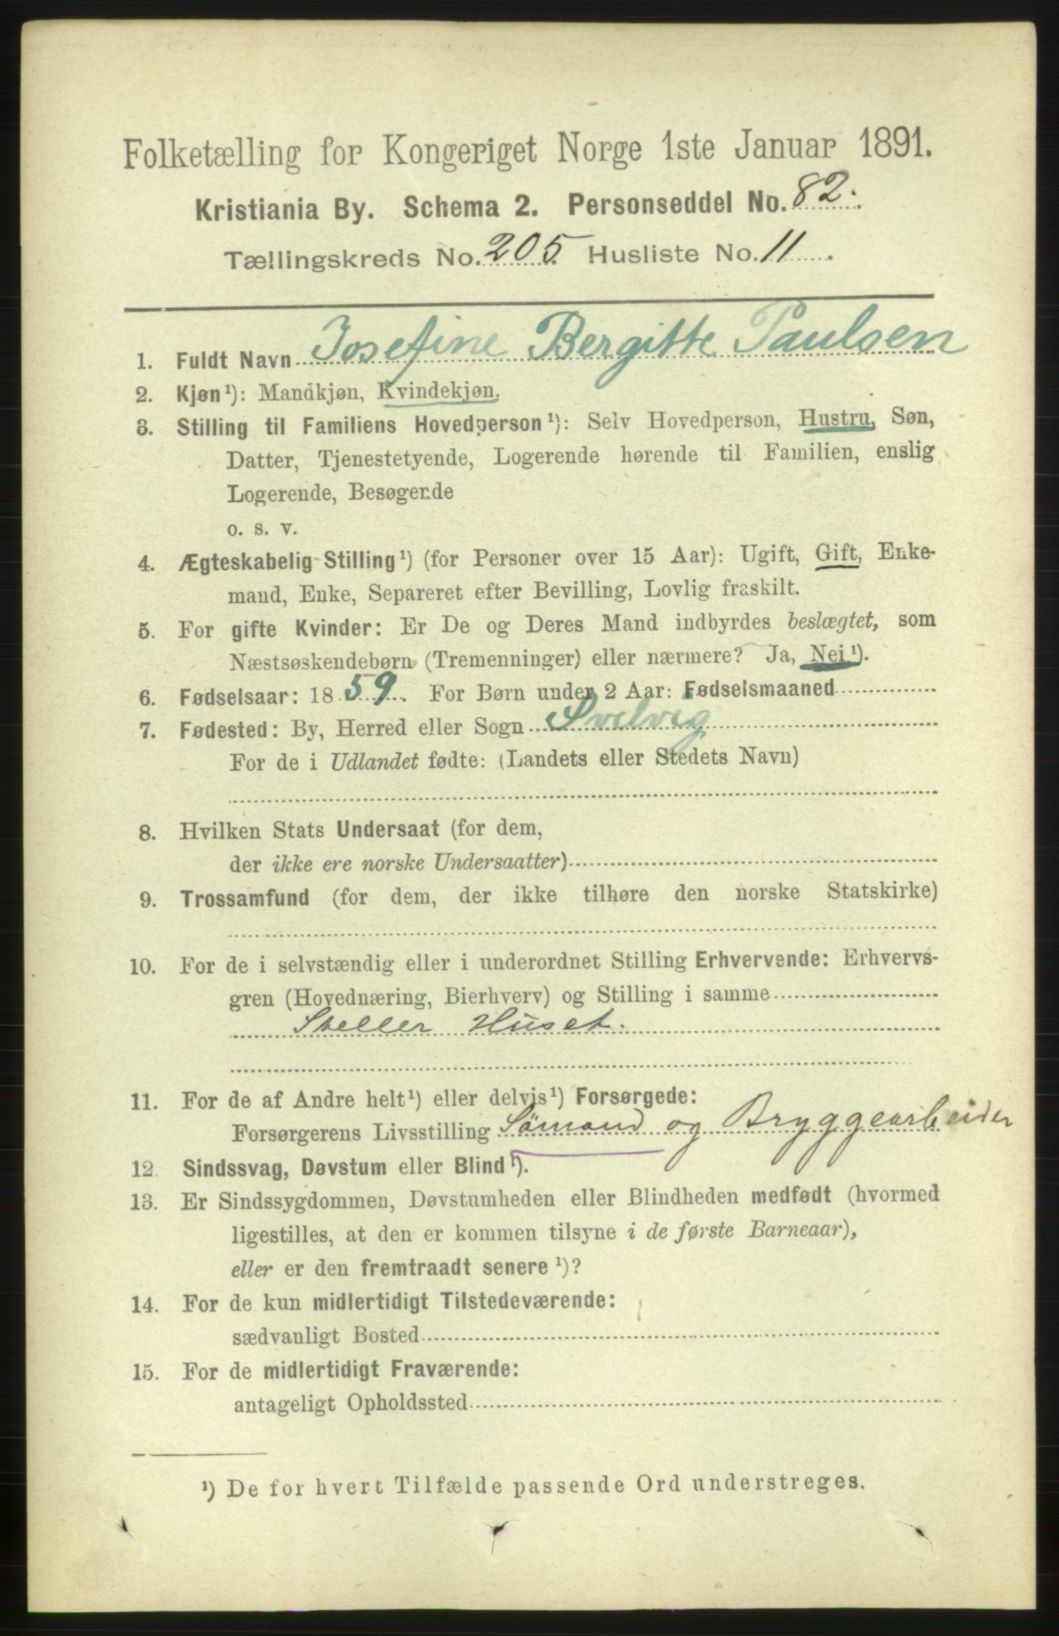 Folketælling for Kongeriget Norge 1ste Januar 1891.
Kristiania By. Schema 2. Personseddel No. 82.
Tællingskreds No. 205 Husliste No. 11.
1. Fuldt Navn Josefine Bergitte Paulsen
2. Kjøn¹): Mandkjøn, Kvindekjøn.
3. Stilling til Familiens Hovedperson¹): Selv Hovedperson, Hustru, Søn,
Datter, Tjenestetyende, Logerende hørende til Familien, enslig
Logerende, Besøgende
o. s. v.
4. Ægteskabelig Stilling¹) (for Personer over 15 Aar): Ugift, Gift, Enke-
mand, Enke, Separeret efter Bevilling, Lovlig fraskilt.
5. For gifte Kvinder: Er De og Deres Mand indbyrdes beslægtet, som
Næstsøskendebørn (Tremenninger) eller nærmere? Ja, Nei¹).
6. Fødselsaar: 1859. For Børn under 2 Aar: Fødselsmaaned
7. Fødested: By, Herred eller Sogn Svelvig
For de i Udlandet fødte: (Landets eller Stedets Navn)
8. Hvilken Stats Undersaat (for dem,
der ikke ere norske Undersaatter)
9. Trossamfund (for dem, der ikke tilhøre den norske Statskirke)
10. For de i selvstændig eller i underordnet Stilling Erhvervende: Erhvervs-
gren (Hovednæring, Bierhverv) og Stilling i samme
Steller Huset.
11. For de af Andre helt¹) eller delvis¹) Forsørgede:
Forsørgerens Livsstilling Sömand og Bryggearbeider
12. Sindssvag, Døvstum eller Blind¹).
13. Er Sindssygdommen, Døvstumheden eller Blindheden medfødt (hvormed
ligestilles, at den er kommen tilsyne i de første Barneaar),
eller er den fremtraadt senere¹)?
14. For de kun midlertidigt Tilstedeværende:
sædvanligt Bosted
15. For de midlertidigt Fraværende:
antageligt Opholdssted
¹) De for hvert Tilfælde passende Ord understreges.